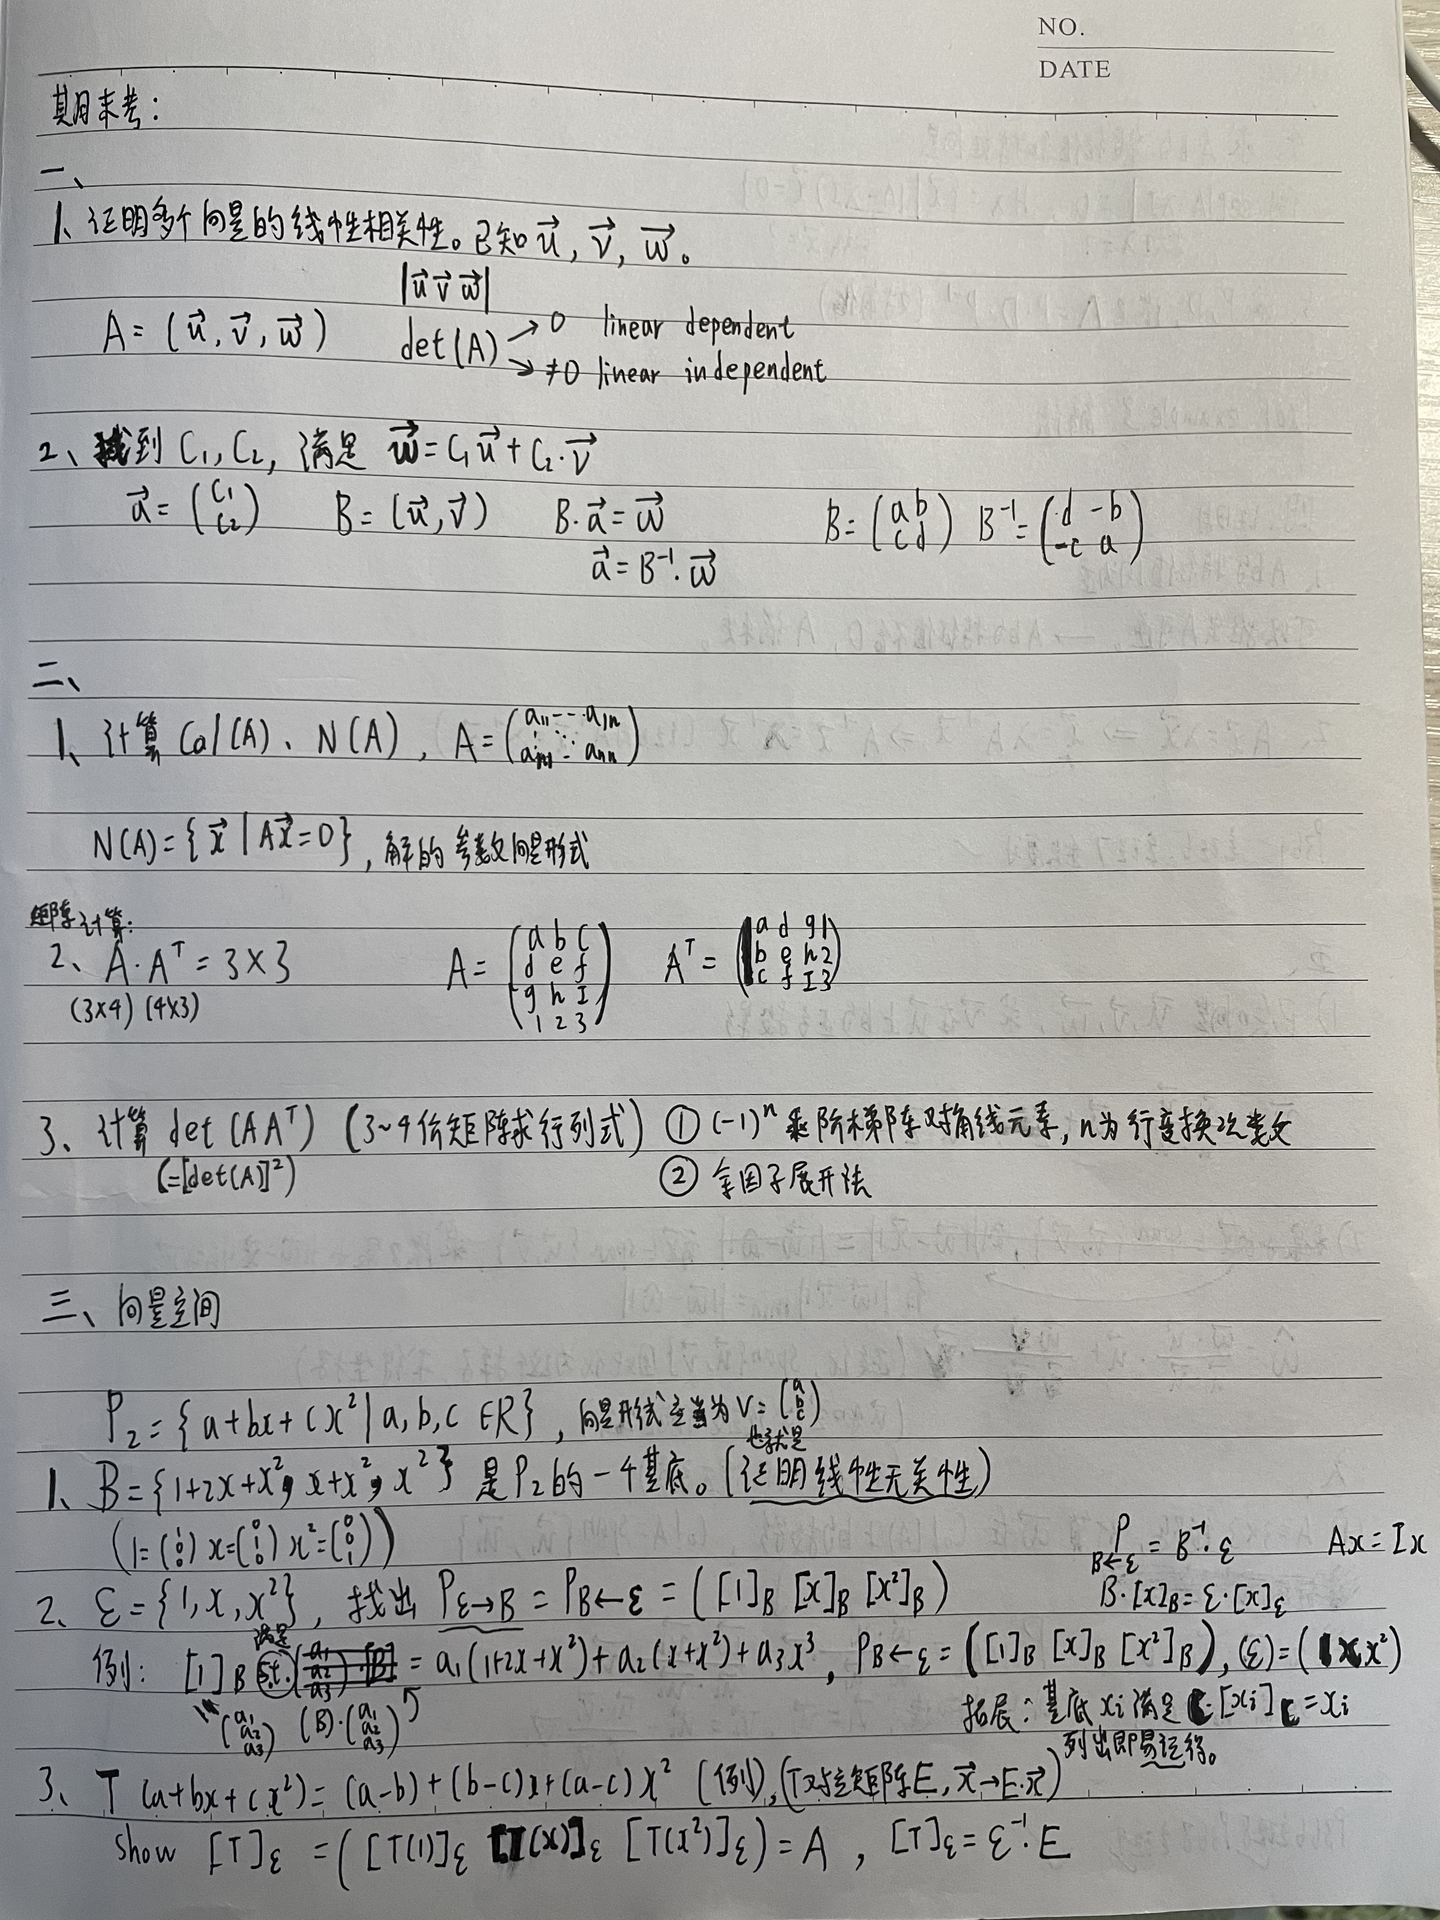 NO.
DATE
期末考：
一、
1、证明多个向量的线性相关性。已知 u⃗, v⃗, w⃗。
|u⃗ v⃗ w⃗|
A = (u⃗, v⃗, w⃗) det(A) → 0 linear dependent
→ ≠0 linear independent
2、找到 C₁, C₂, 满足 w⃗ = C₁u⃗ + C₂·v⃗
a⃗ = (C₁ C₂) B = (u⃗, v⃗) B·a⃗ = w⃗ B = (a b / c d) B⁻¹ = (d -b / -c a)
a⃗ = B⁻¹·w⃗
二、
1、计算 Col(A)、N(A), A = (a₁₁ ... a₁ₙ / ⋮ ⋱ / aₙ₁ ... aₙₙ)
N(A) = {x⃗ | Ax⃗ = 0}, 解的参数向量形式
矩阵计算：
2、A·Aᵀ = 3×3 A = (a b c / d e f / g h I / 1 2 3) Aᵀ = (a d g 1 / b e h 2 / c f I 3)
(3×4) (4×3)
3、计算 det(AAᵀ) (3~4阶矩阵求行列式) ① (-1)ⁿ 乘阶梯阵对角线元素, n为行变换次数
(=[det(A)]²) ② 余因子展开法
三、向量空间
P₂ = {a+bx+cx² | a,b,c ∈R}, 向量形式应当为 V = (a b c)
也就是
1、B = {1+2x+x², x+x², x²} 是P₂的一个基底。(证明线性无关性)
(1=(1 0 0) x=(0 1 0) x²=(0 0 1)) P B←ε = B⁻¹·ε Ax = Ix
2、ε = {1, x, x²}, 找出 P ε→B = P B←ε = ([1]B [x]B [x²]B) B·[x]B = ε·[x]ε
满足
例: [1]B s.t. = a₁(1+2x+x²)+a₂(x+x²)+a₃x³, P B←ε = ([1]B [x]B [x²]B), (ε) = (1 x x²)
(a₁ a₂ a₃) (B)·(a₁ a₂ a₃) 拓展：基底 xi 满足 ε·[xi]ε = xi
列出即易运得。
3、T(a+bx+cx²) = (a-b)+(b-c)x+(a-c)x² (例), (T对应矩阵E, x⃗→E·x⃗)
show [T]ε = ([T(1)]ε [T(x)]ε [T(x²)]ε) = A, [T]ε = ε⁻¹·E